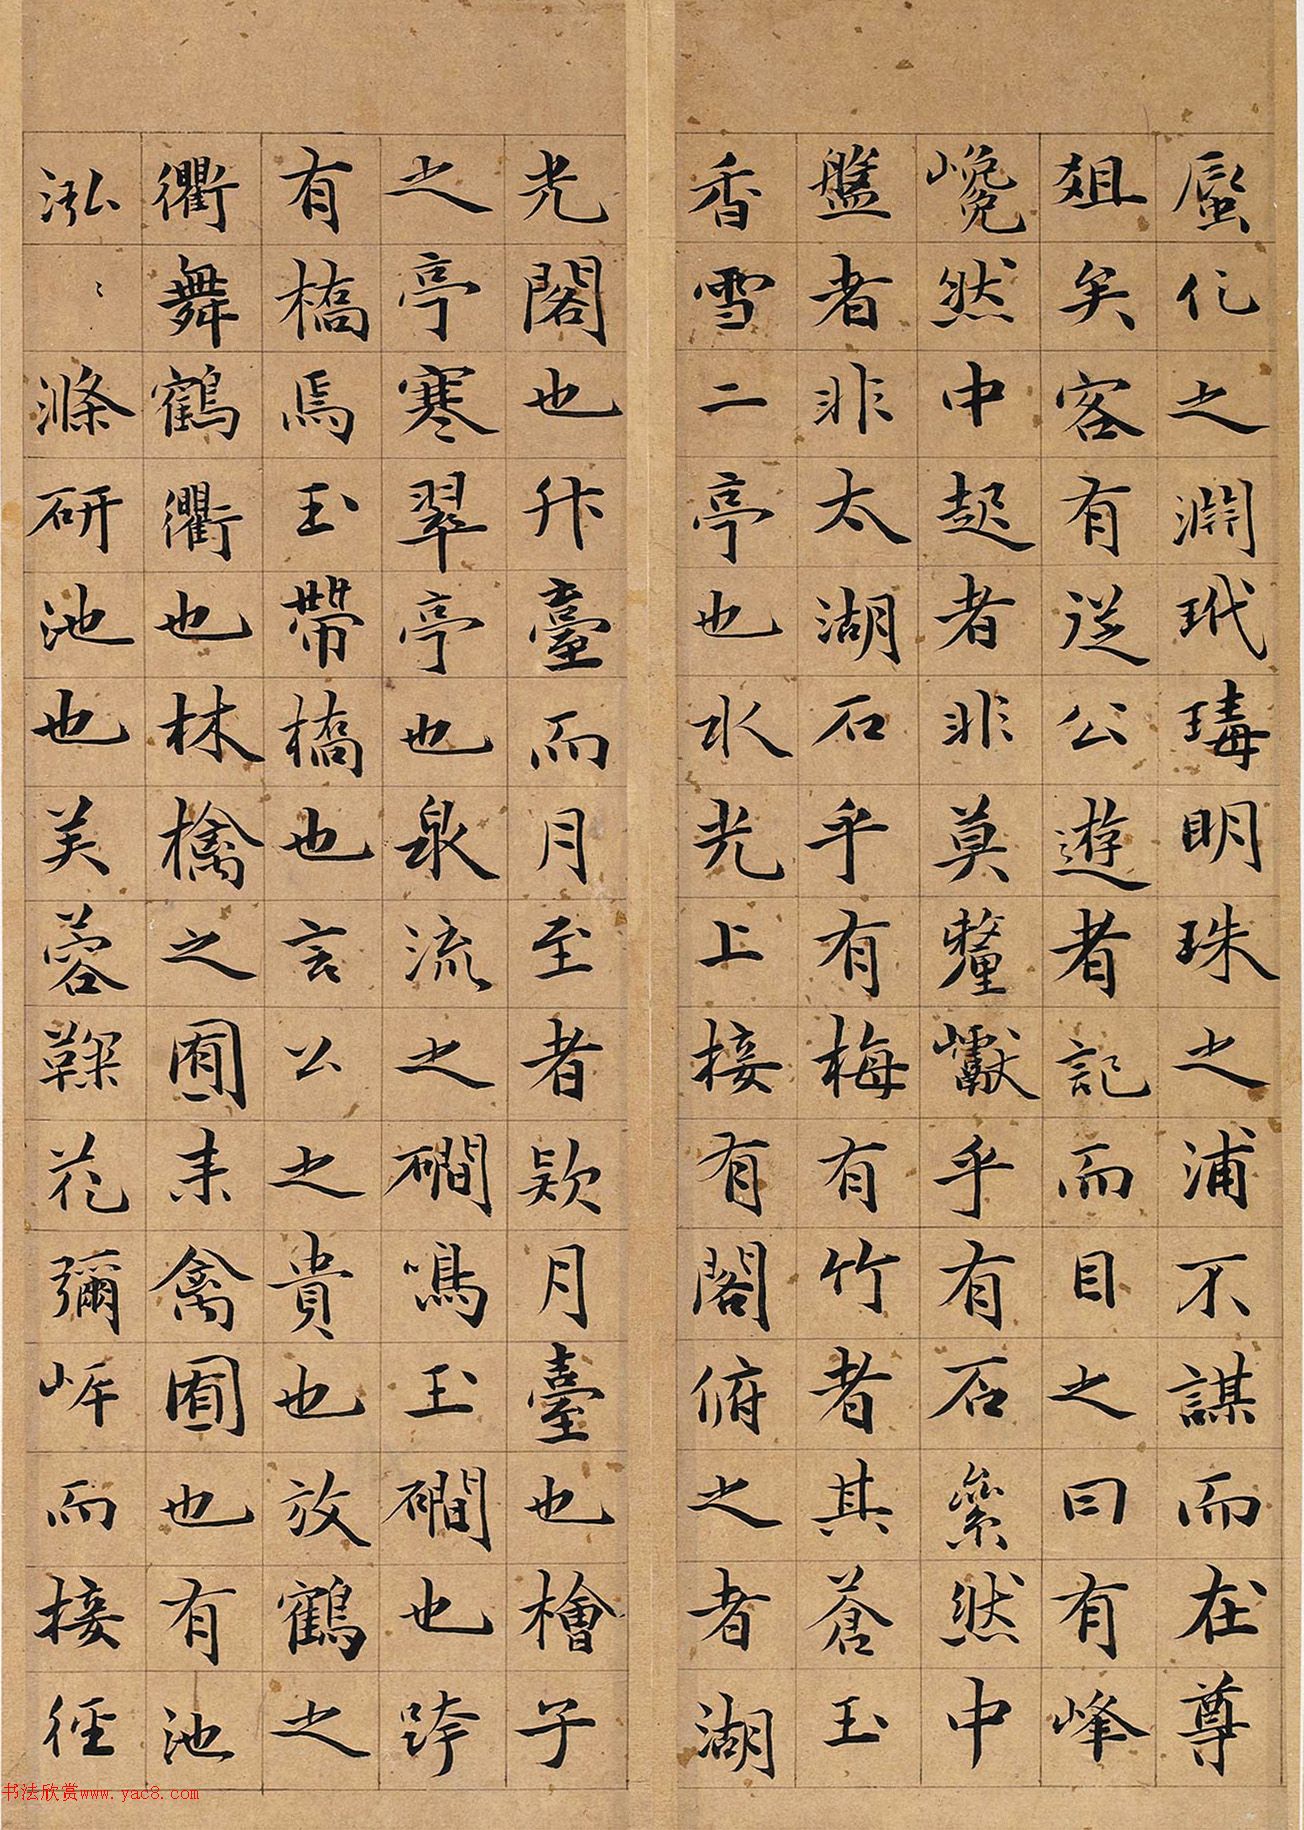 蜃化之淵玳瑇明珠之浦不謀而在尊
爼矣客有從公遊者記而目之曰有峰
巉然中起者非莫釐巘乎有石纍然中
盤者非太湖石乎有梅有竹者其蒼玉
香雪二亭也水光上接有閣俯之者湖
光閣也升臺而月至者款月臺也檜子
之亭寒翠亭也泉流之磵鳴玉磵也跨
有橋焉玉帶橋也言公之貴也放鶴之
衢舞鶴衢也林檎之囿来禽囿也有池
泓〻滌研池也芙蓉鞠花彌岸而接徑
书法欣赏www.yac8.com